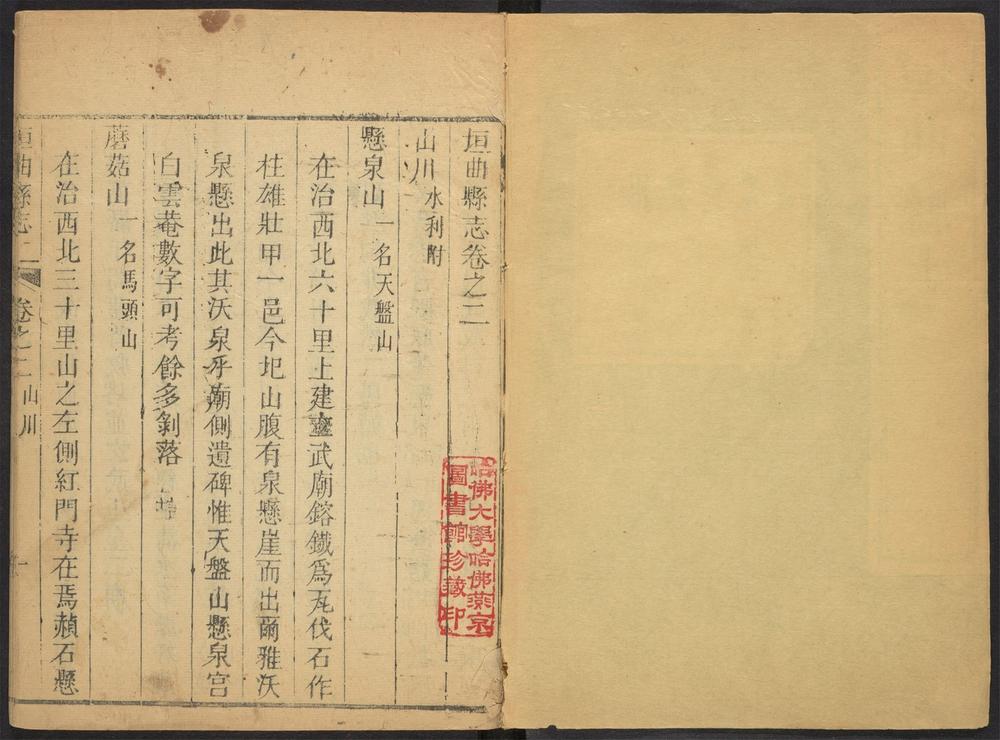 垣曲縣志卷之二
山川 水利附
懸泉山 一名天盤山
在治西北六十里上建玄武廟鎔鐵為瓦伐石作
柱雄壯甲一邑今圮山腹有泉懸崖而出爾雅沃
泉懸出此其沃泉乎廟側遺碑惟天盤山懸泉宮
白雲菴數字可考餘多剝落
蘑菇山 一名馬頭山
在治西北三十里山之左側紅門寺在焉赬石懸
垣曲縣志 卷之二 山川
哈佛大學哈佛燕京
圖書館珍藏印